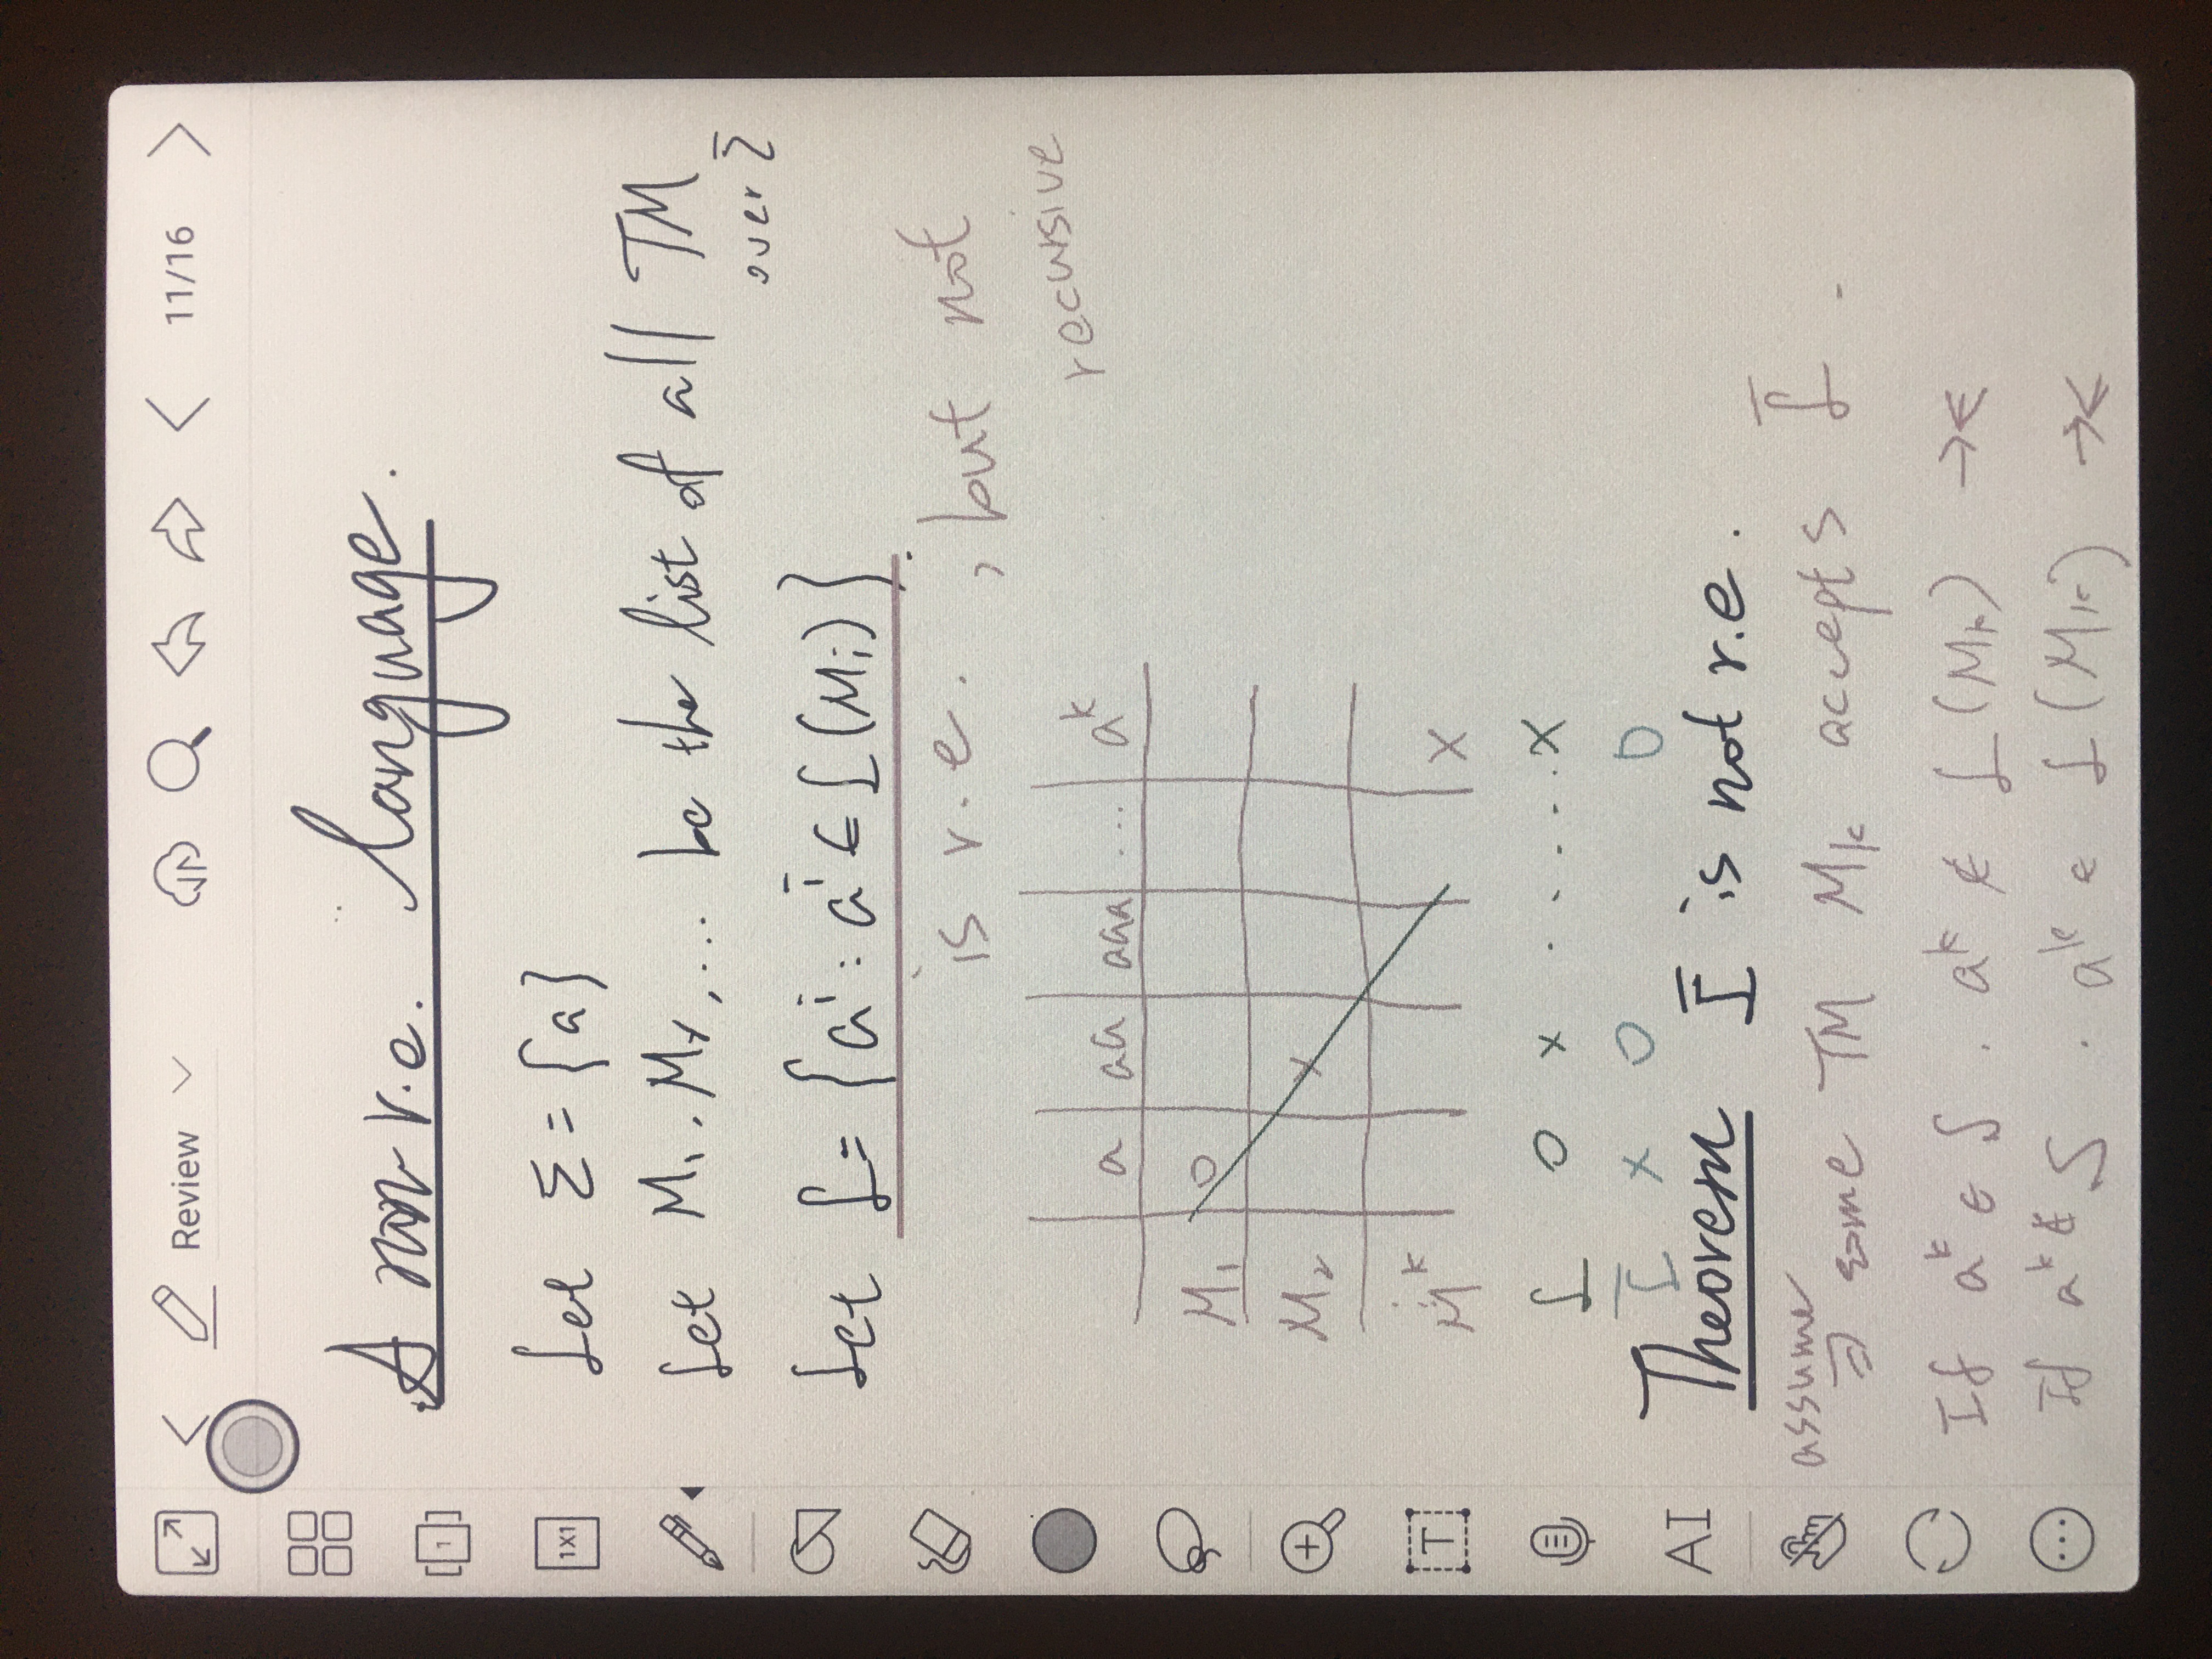 Review
11/16
A non r.e. language.
1
Let Σ = {a}
1X1
Let M₁, M₂, ... be the list of all TM
over Σ
Let L = {aⁱ : aⁱ ∈ L(Mᵢ)}.
is r.e. , but not
recursive
a aa aaa ... aᵏ
M₁ O
M₂ X
Mᵏ X
L O X ...... X
L̅ X O O
T
AI
Theorem L̅ is not r.e.
assume
⇒ some TM Mₖ accepts L̅.
If aᵏ ∈ S . aᵏ ∉ L(Mₖ) →←
If aᵏ ∉ S . aᵏ ∈ L(Mₖ) →←